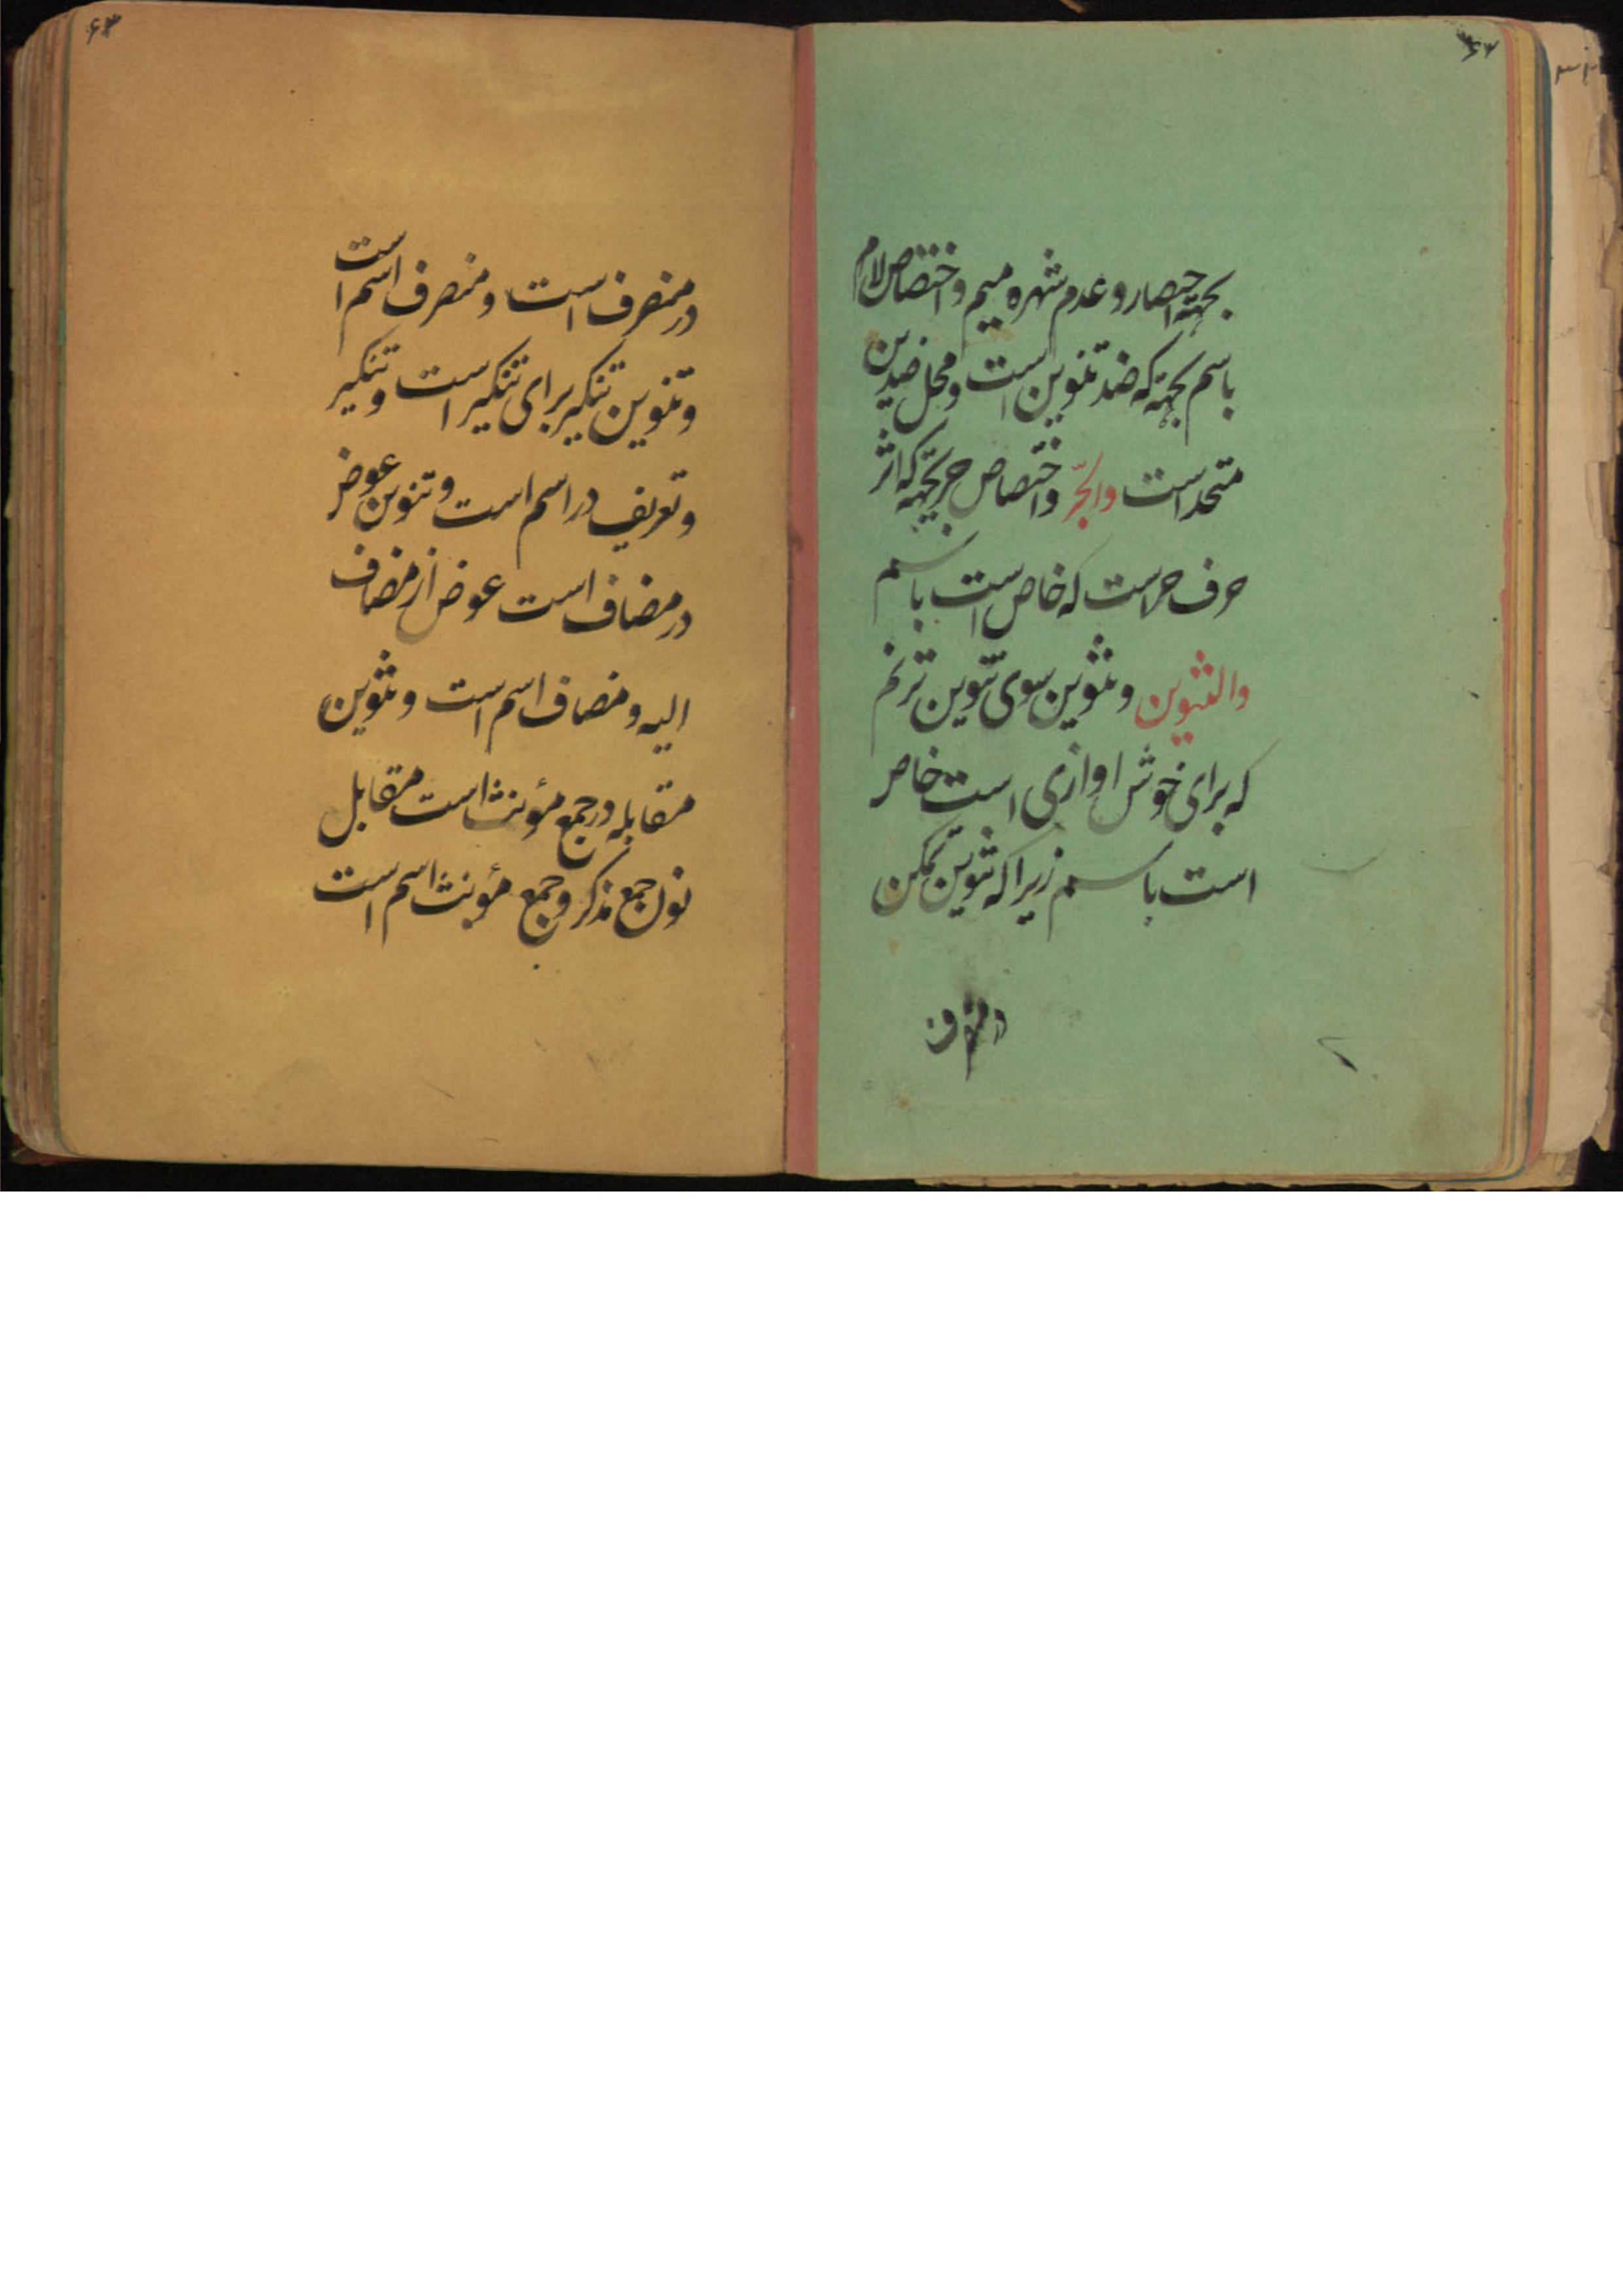 بجهته اختصار و عدم شهره میم و اختصاص لام
باسم بجهته که ضد تنوین است و محل ضدین
متحد است والجرّ و اختصاص جر بجهته که اثر
حرف جر است که خاص است باسم
والتنوین و تنوین سوی تنوین ترنم
که برای خوش اوازی است خاص
است باسم زیرا که تنوین تمکن
در منصرف
در منصرف است و منصرف اسم است
و تنوین تنکیر برای تنکیر است و تنکیر
و تعریف در اسم است و تنوین عوض
در مضاف است عوض از مضاف
الیه و مضاف اسم است و تنوین
مقابله در جمع مؤنث است مقابل
نون جمع مذکر و جمع مؤنث اسم است